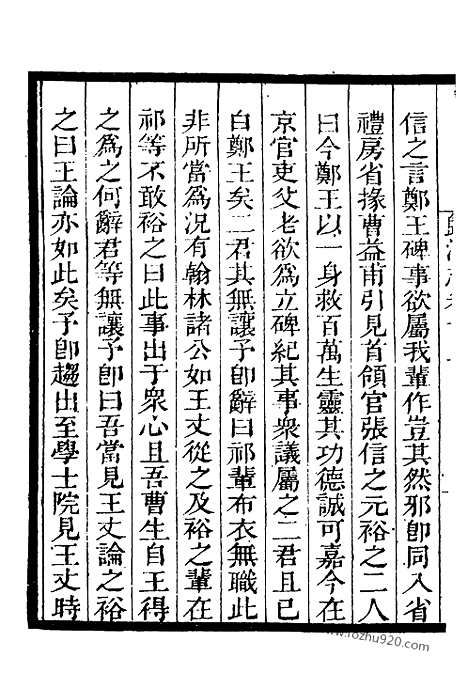 信之言鄭王碑事欲屬我輩作豈其然邪卽同入省
禮房省掾曹益甫引見首領官張信之元裕之二人
曰今鄭王以一身救百萬生靈其功德誠可嘉今在
京官吏父老欲爲立碑紀其事衆議屬之二君且已
白鄭王矣二君其無讓予卽辭曰祁輩布衣無職此
非所當爲況有翰林諸公如王丈從之及裕之輩在
祁等不敢裕之曰此事出于衆心且吾曹生自王得
之爲之何辭君等無讓予卽曰吾當見王丈論之裕
之曰王論亦如此矣予卽趨出至學士院見王丈時
www.rozhu920.com